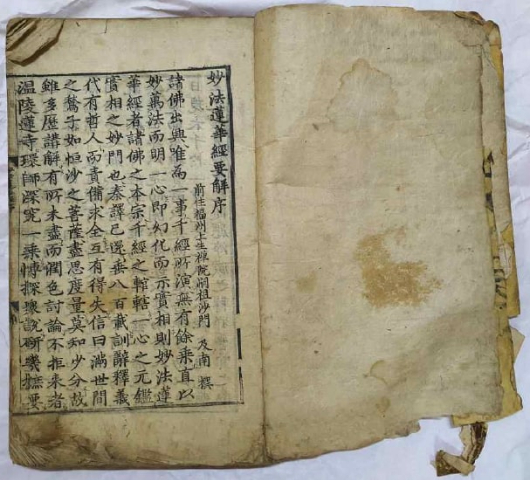 妙法蓮華經要解序
前住福州上生禪院嗣祖沙門 及南 撰
諸佛出興唯爲一事千經所演無有餘乘直以
妙萬法而明一心即幻化而示實相則妙法蓮
華經者諸佛之本宗千經之轄轄一心之元鑑
實相之妙門也秦譯已還垂八百載訓辭釋義
代有哲人而責備求全互有得失信曰滿世間
之鶖子如恒沙之菩薩盡思度量莫知少分故
雖多歷諸解有所未盡而潤色討論不拒來者
温陵蓮寺環師深究一乘愽探衆說硏㡬摭要